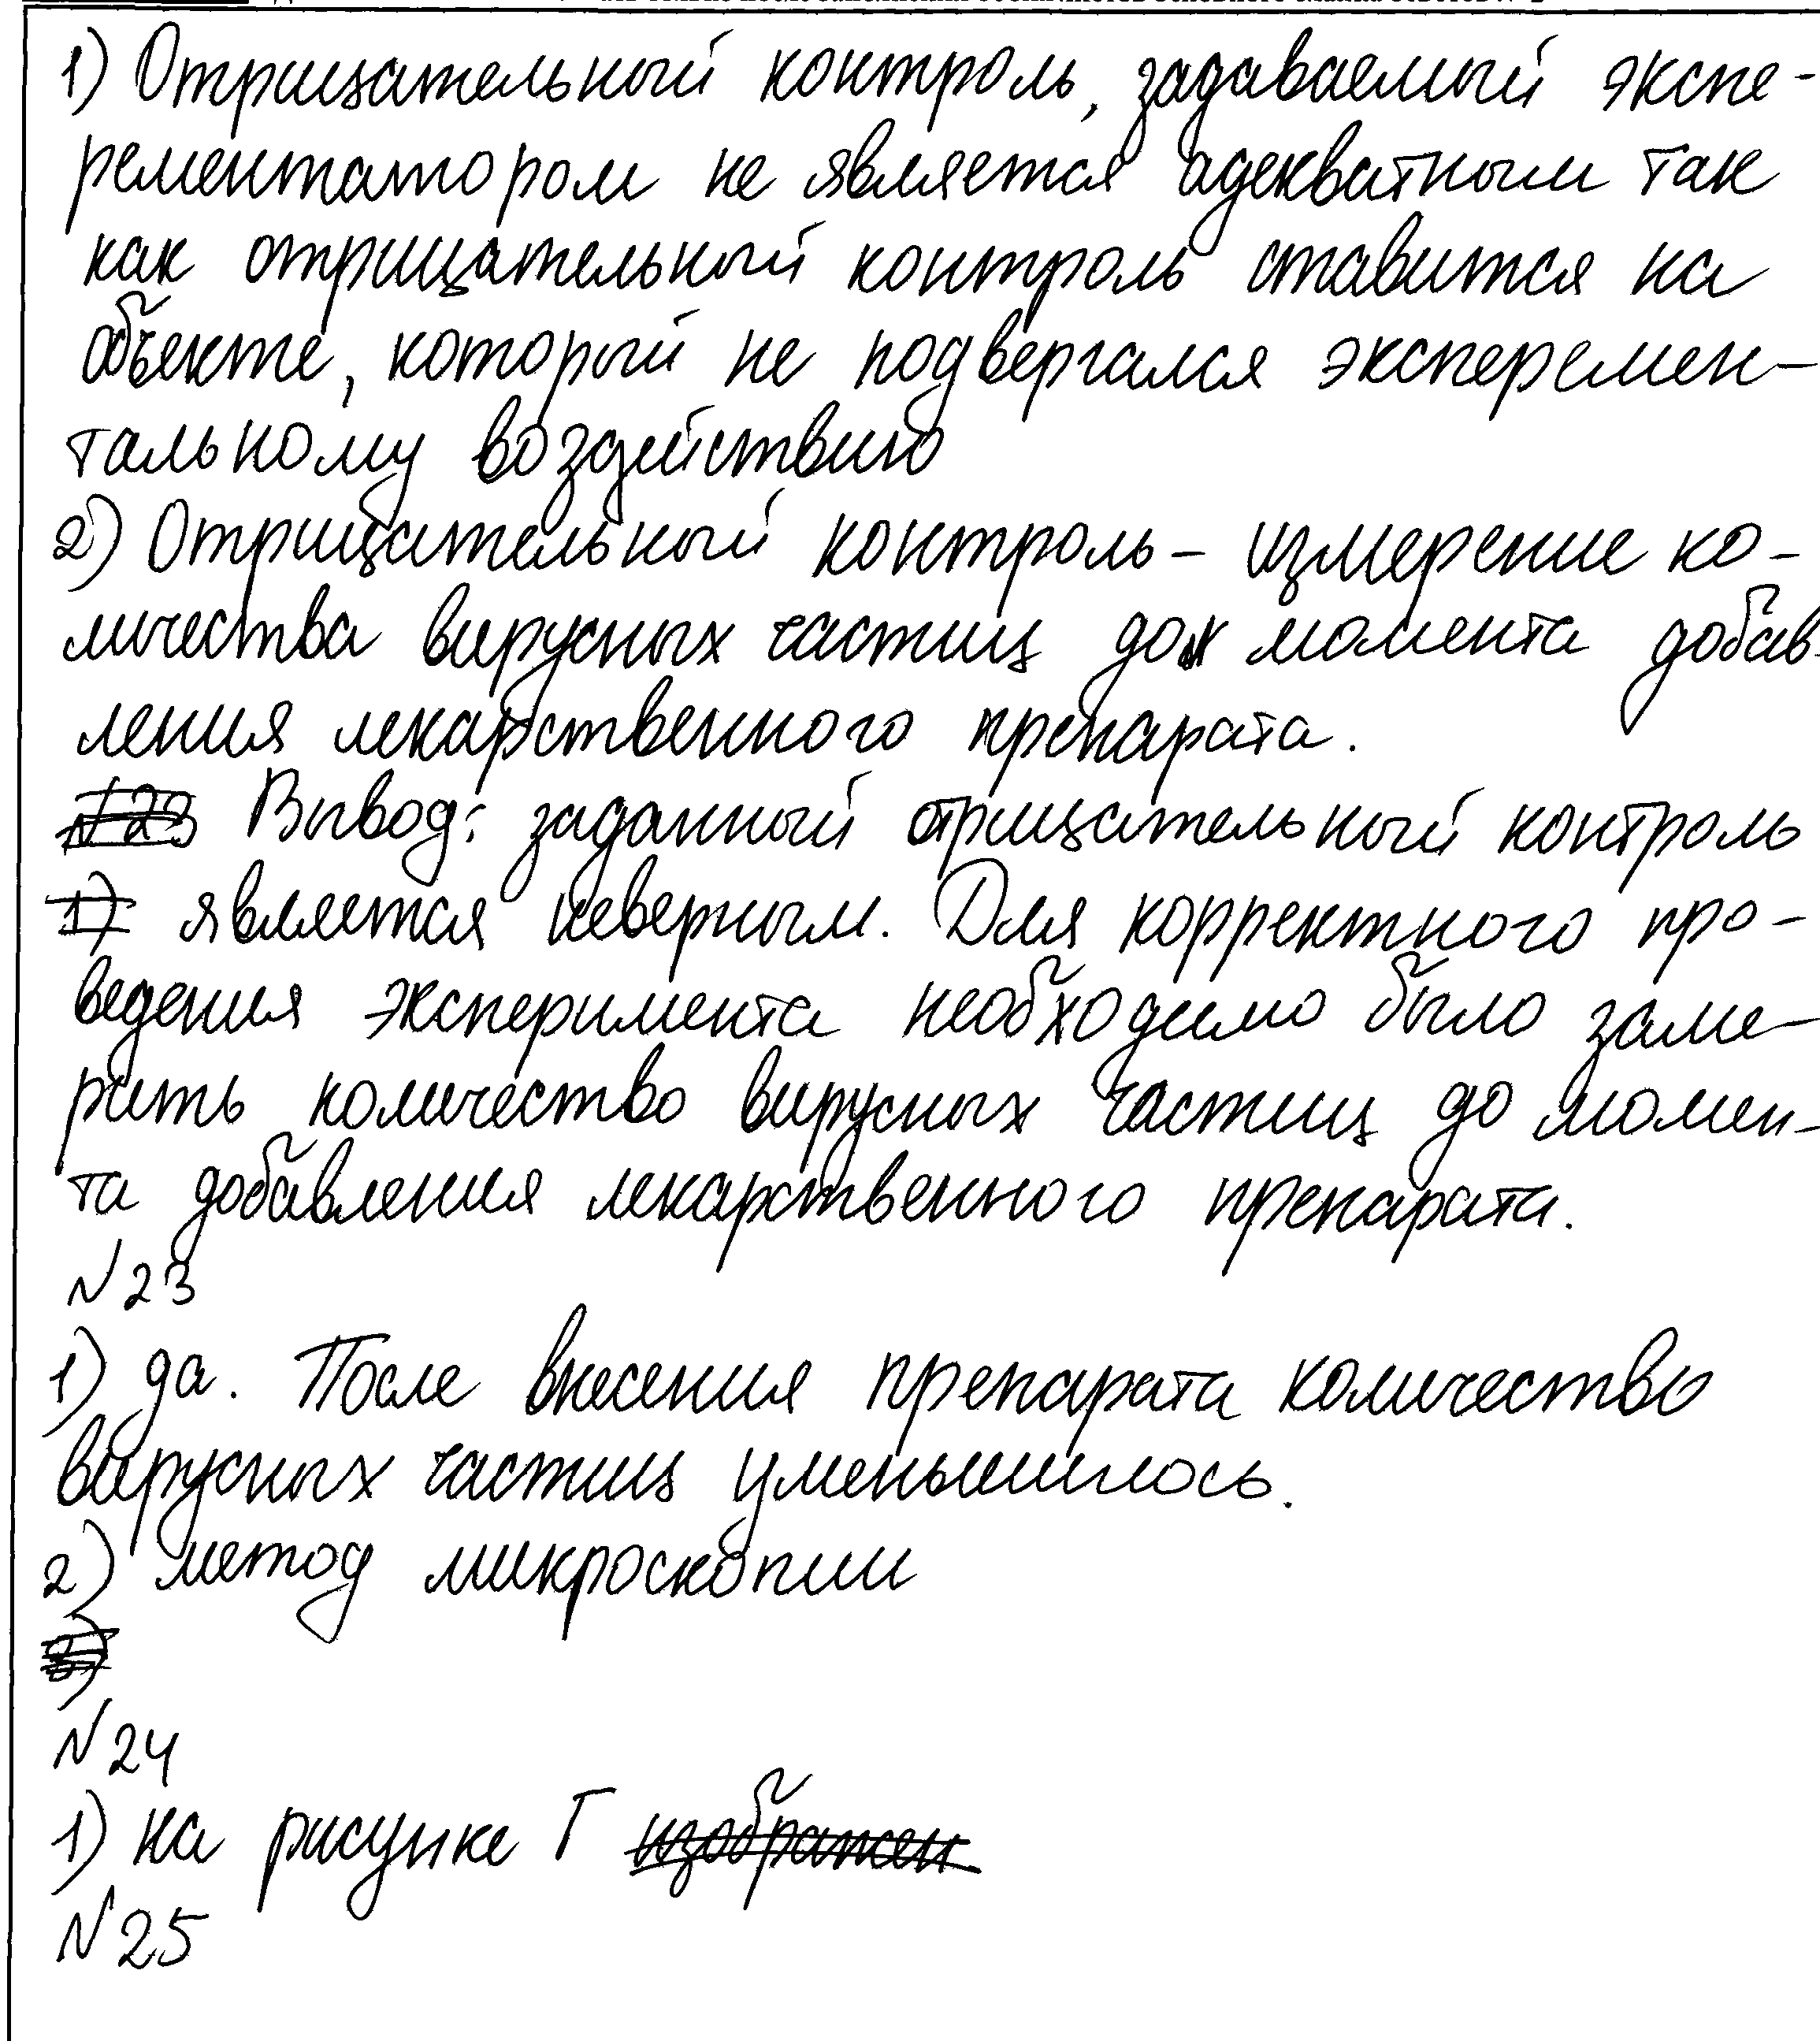 1) Отрицательный контроль, задаваемый экспе-
рементатором не является адекватным так
как отрицательный контроль ставится на
объекте, который не подвергался эксперемен-
тальному воздействию
2) Отрицательный контроль – измерение ко-
личества вирусных частиц до момента добав-
ления лекарственного препарата.
№23 Вывод: заданный отрицательный контроль
1) является неверным. Для корректного про-
ведения эксперимента необходимо было заме-
рить количество вирусных частиц до момен-
та добавления лекарственного препарата.
N23
1) да. После внесения препарата количество
вирусных частиц уменьшилось.
2) метод микроскопии
3)
N24
1) на рисунке Г изображен
N25